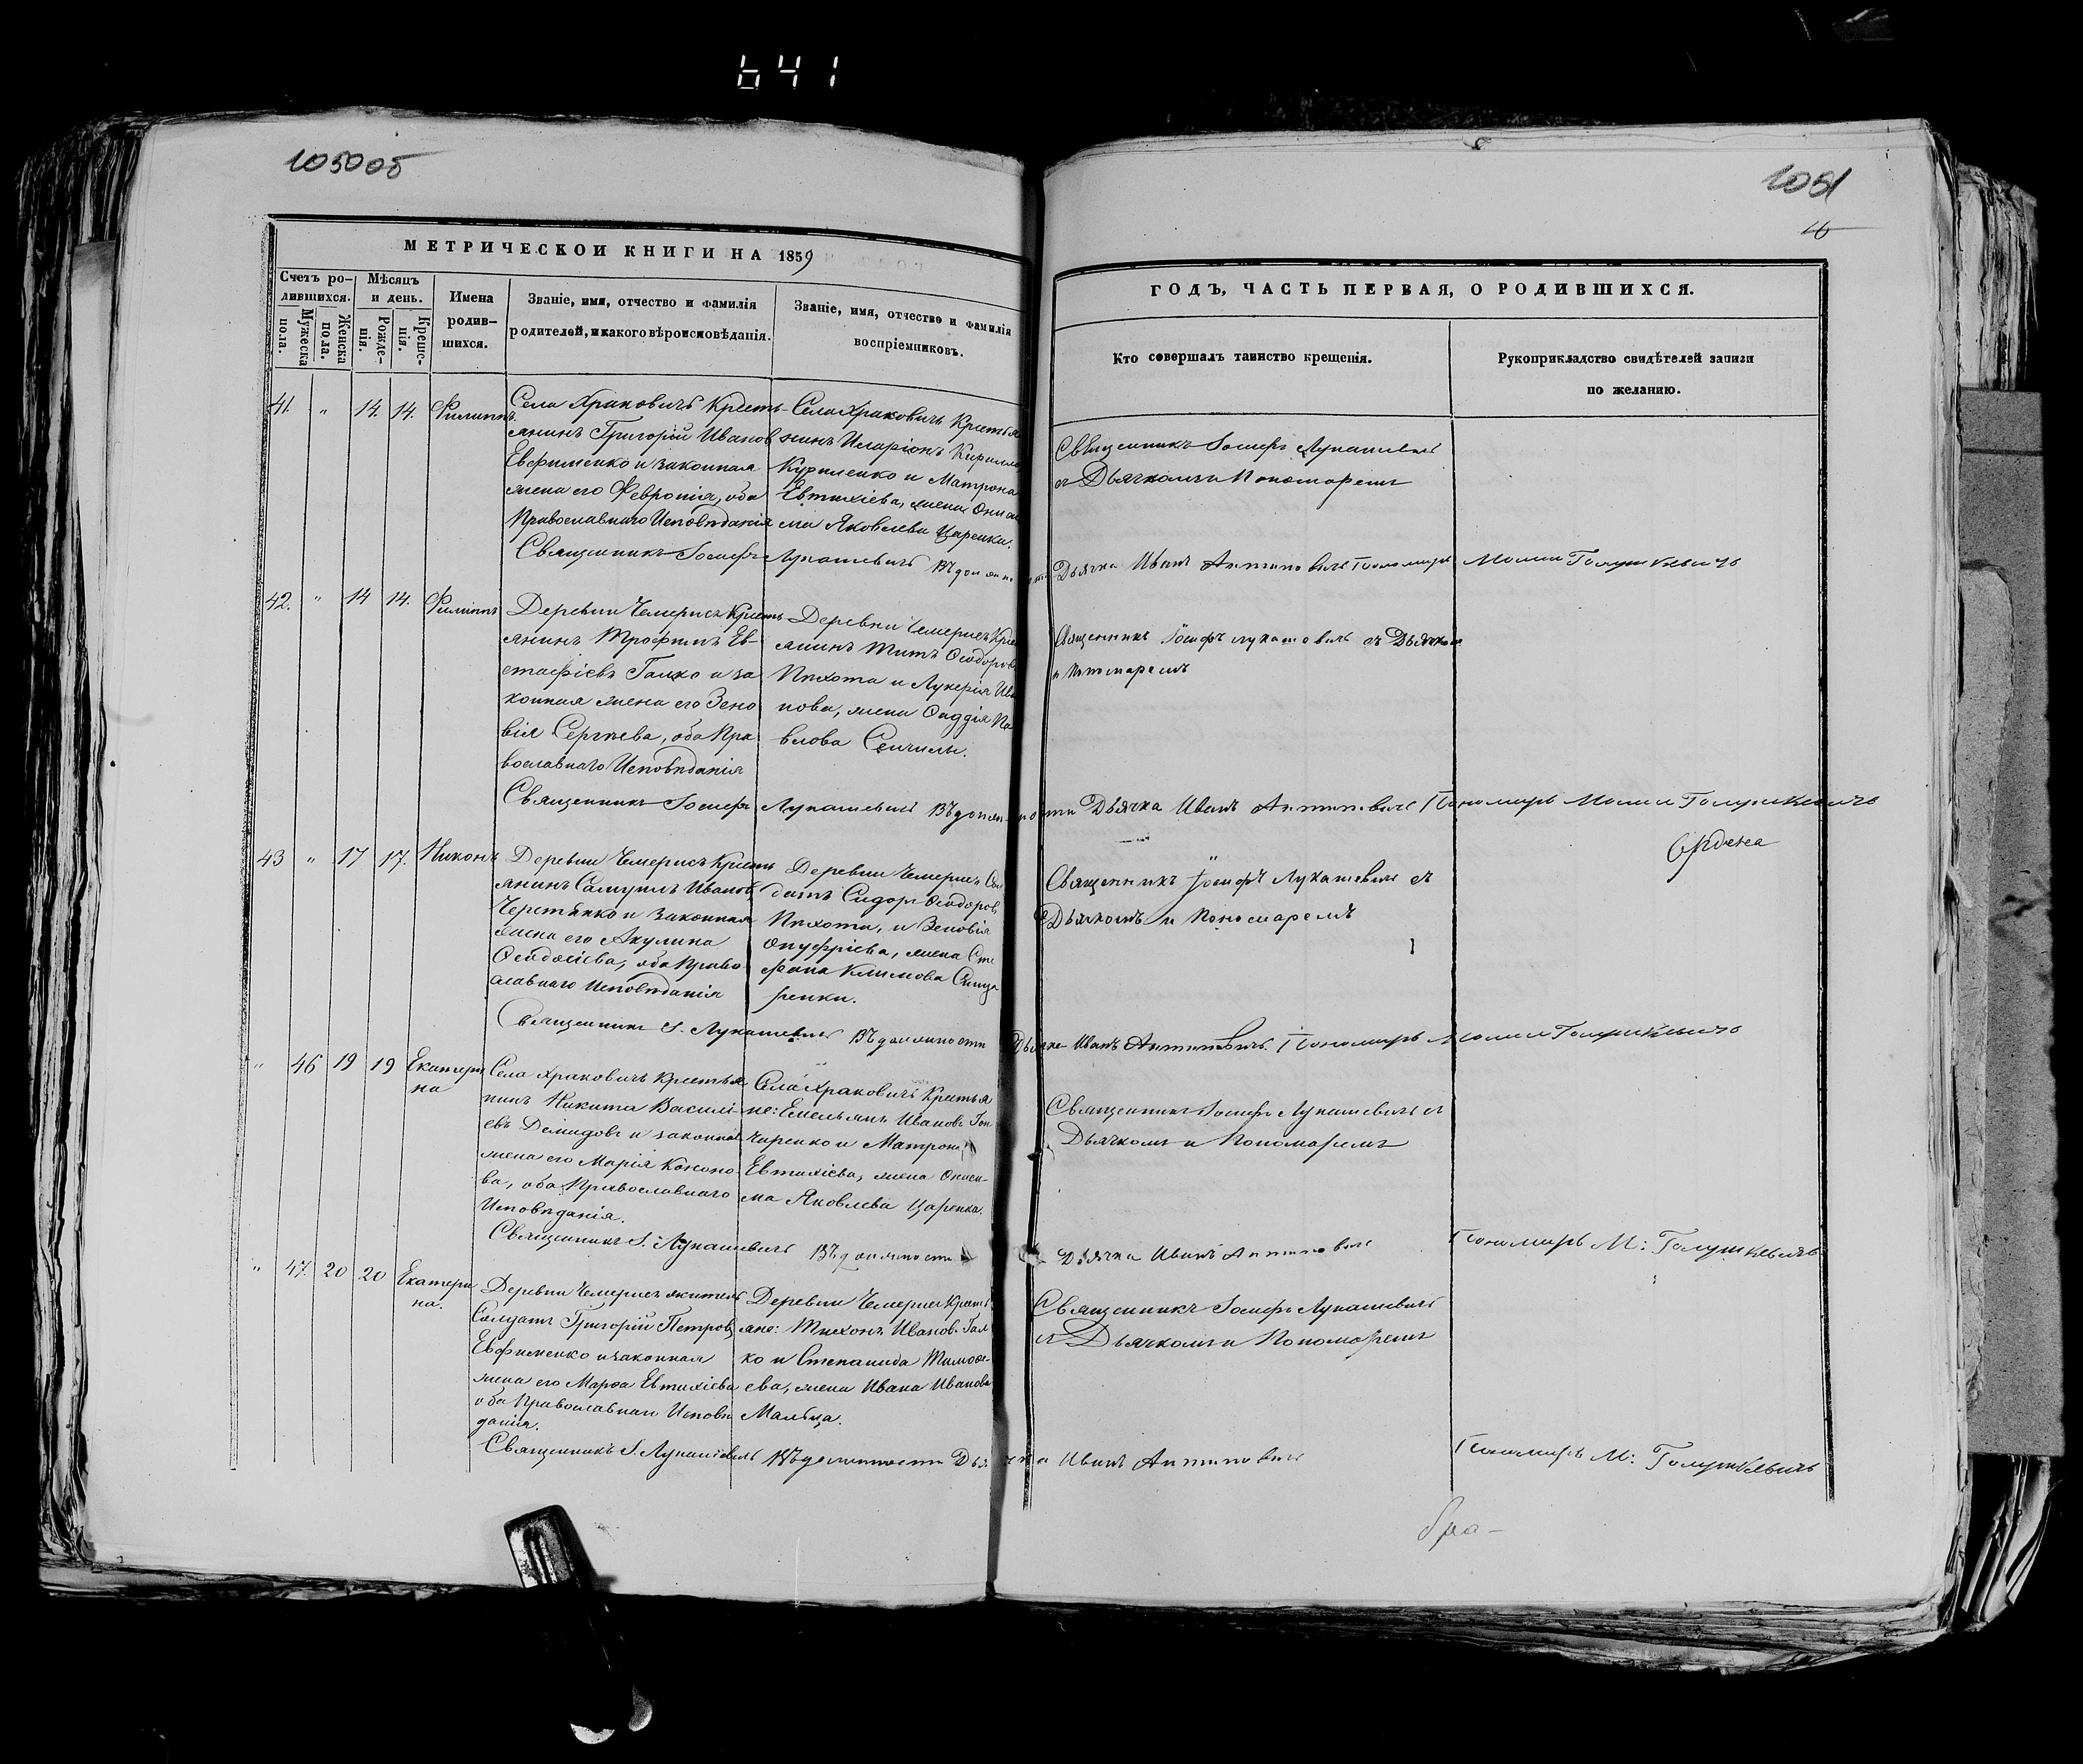 641
1050об
1051
16
МЕТРИЧЕСКОЙ КНИГИ НА 1859
ГОДЪ, ЧАСТЬ ПЕРВАЯ, О РОДИВШИХСЯ.
Счетъ ро-
дившихся.
Мужеска
пола.
Женска
пола.
Мѣсяцъ
и день.
Рожде-
нія.
Креще-
нія.
Имена
родив-
шихся.
Званіе, имя, отчество и фамилія
родителей, и какого вѣроисповѣданія.
Званіе, имя, отчество и фамилія
воспріемниковъ.
Кто совершалъ таинство крещенія.
Рукоприкладство свидѣтелей записи
по желанію.
41. " 14. 14. Филиппъ
Села Храковичъ Кресть-
янинъ Григорій Иванов
Евфименко и законная
жена его Февронія, оба
Православнаго Исповѣданія
Села Храковичъ Крестья
нинъ Иларіонъ Кирилло
Куриленко и Матрона
Евтихіева, женаОниси
ма Яковлева Царенка.
Священникъ Іосифъ Лукашевичъ
съ Дьячкомъ и Пономаремъ
Священникъ Іосифъ Лукашевичъ Въ должности Дьячка Иванъ Антиповичъ Пономарь Моисей Голушкевичъ
42. " 14 14. Филиппъ
Деревни Чемерисъ Кресть
янинъ Трофимъ Ев-
стафіевъ Галко и за
конная жена его Зено
вія Сергѣева, оба Пра
вославнаго Исповѣданія
Деревни Чемерисъ Крес
янинъ Титъ Ѳеодоров
Пѣхота и Лукерія Ива
нова, жена Ѳаддія Па
влова Сенчилы.
Священникъ Іосифъ Лукашевичъ съ Дьячкомъ
и Пономаремъ
Священникъ Іосифъ Лукашевичъ Въ должности Дьячка Иванъ Антиповичъ Пономарь Моисей Голушкевичъ
43 " 17 17. Никонъ
Деревни Чемерисъ Кресть
янинъ Самуилъ Иванов
и законная
жена его Акулина
Ѳеодосіева, оба Право
славнаго Исповѣданія
Деревни Чемерисъ Сол
датъ Сидоръ Ѳеодоров
Пѣхота, и Зеновія
Онуфріева, жена Сте
фана Климова
ренки.
Священникъ Іосифъ Лукашевичъ съ
Дьячкомъ и Пономаремъ
Священникъ І. Лукашевичъ Въ должности Дьячка Иванъ Антиповичъ. Пономарь Моисей Голушкевичъ
" 46 19 19 Екатери
на
Села Храковичъ Крестья
нинъ Никита Василі-
евъ Демидовъ и законная
жена его Марія Конono-
ва, оба Православнаго
Исповѣданія.
Села Храковичъ Крестья
не: Емельянъ Ивановъ Гон
чаренко и Матрона
Евтихіева, жена Ониси-
ма Яковлева Царенка.
Священникъ Іосифъ Лукашевичъ съ
Дьячкомъ и Пономаремъ
Священникъ І. Лукашевичъ Въ должности Дьячка Иванъ Антиповичъ Пономарь М: Голушкевичъ
" 47. 20 20 Екатери
на.
Деревни Чемерисъ житель
Солдатъ Григорій Петровъ
Евфименко и законная
жена его Марѳа Евтихіева
оба Православнаго Исповѣ
данія.
Деревни Чемерисъ Кресть
яне: Тихонъ Ивановъ Гал
ко и Степанида Тимоѳе-
ева, жена Ивана Иванова
Мальца.
Священникъ Іосифъ Лукашевичъ
съ Дьячкомъ и Пономаремъ
Священникъ І. Лукашевичъ Въ должности Дьячка Иванъ Антиповичъ Пономарь М: Голушкевичъ